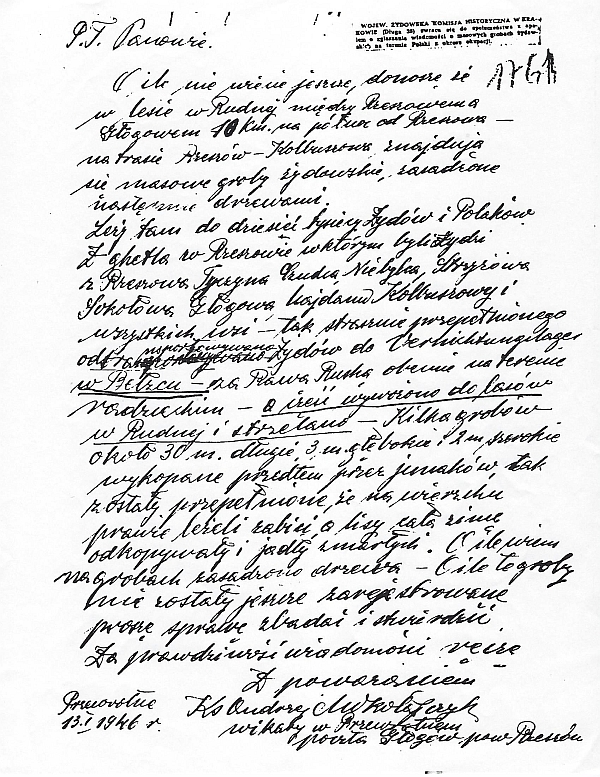 WOJEW. ŻYDOWSKA KOMISJA HISTORYCZNA W KRA-
KOWIE (Długa 38) zwraca się do społeczeństwa z ape-
lem o zgłaszanie wiadomości o masowych grobach żydow-
skich na terenie Polski z okresu okupacji.
P.T. Panowie.
1761
O ile nie wiecie jeszcze, donoszę że
w lesie w Rudnej między Rzeszowem a
Głogowem 10 km. na północ od Rzeszowa –
na trasie Rzeszów – Kolbuszowa znajdują
się masowe groby żydowskie, zasadzone
następnie drzewami.
Leży tam do dziesięć tysięcy Żydów i Polaków
Z ghetta w Rzeszowie w którym byli Żydzi
z Rzeszowa Tyczyna Niebylca, Strzyżowa
Sokołowa Głogowa Majdanu Kolbuszowy i
wszystkich wsi – tak strasznie przepełnionego
odtransportowywano Żydów do Vernichtungslager
w Bełzcu – za Rawa Ruska obecnie na terenie
radzieckim – a część wywożono do lasów
w Rudnej i strzelano – Kilka grobów
około 30 m. długie 3 m. głębokie i 2 m. szerokie
wykopane przedtem przez junaków, tak
zostały przepełnione, że na wierzchu
prawie leżeli zabici, a lisy całą zimę
odkopywały i jadły zmarłych. O ile wiem
na grobach zasadzono drzewa – O ile te groby
nie zostały jeszcze zarejestrowane
proszę sprawę zbadać i stwierdzić
Za prawdziwość wiadomości ręczę
Z poważaniem
Ks Andrzej Mikołajczyk
Przewrotne
13.I 1946 r.
wikary w Przewrotnem
poczta Głogów pow. Rzeszów